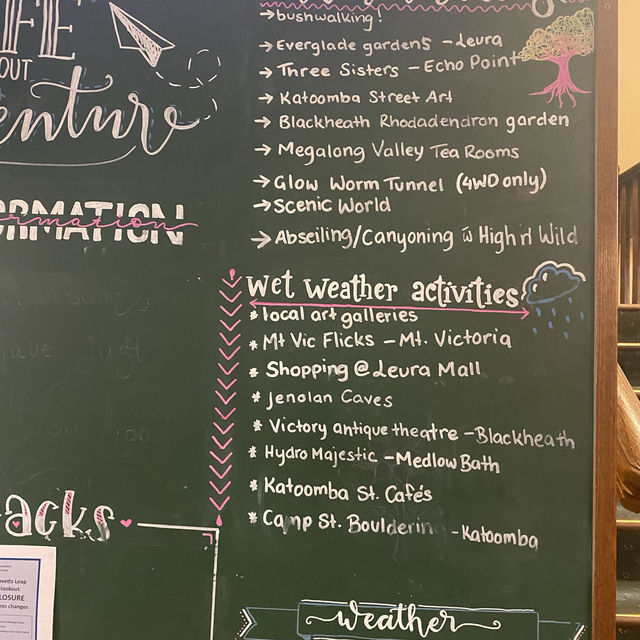 FE
OUT
enture
ORMATION
ormation
→ bushwalking!
→ Everglade gardens - Leura
→ Three Sisters - Echo Point
→ Katoomba Street Art
→ Blackheath Rhodadendron garden
→ Megalong Valley Tea Rooms
→ Glow Worm Tunnel (4WD only)
→ Scenic World
→ Abseiling/Canyoning w High n Wild
wet weather activities
* local art galleries
* Mt Vic Flicks - Mt. Victoria
* Shopping @ Leura Mall
* Jenolan Caves
* Victory antique theatre - Blackheath
* Hydro Majestic - Medlow Bath
* Katoomba St. Cafés
* Camp St. Boulderin - Katoomba
acks
vetts Leap
lookout
LOSURE
ess changes
weather